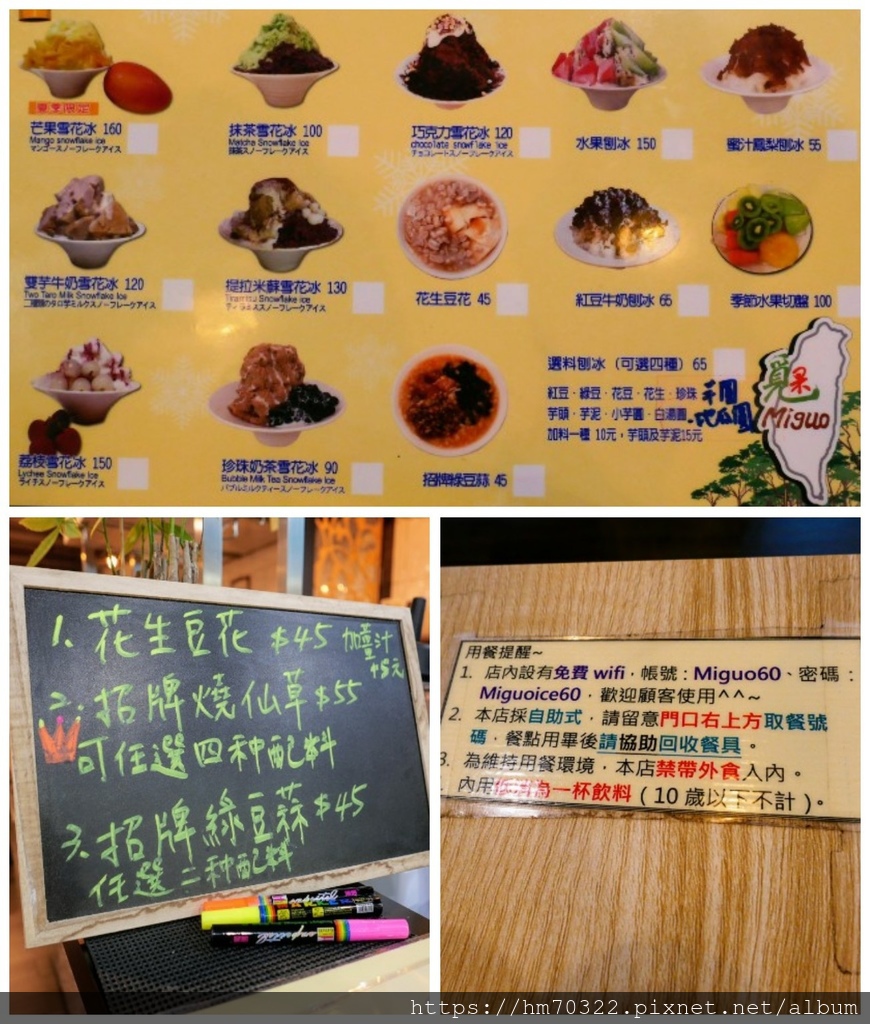 夏季限定
芒果雪花冰 160
Mango snowflake ice
マンゴースノーフレークアイス
抹茶雪花冰 100
Matcha Snowflake Ice
抹茶スノーフレークアイス
巧克力雪花冰 120
chocolate snowflake ice
チョコレートスノーフレークアイス
水果刨冰 150
蜜汁鳳梨刨冰 55
雙芋牛奶雪花冰 120
Two Taro Milk Snowflake Ice
二種類のタロ芋ミルクスノーフレークアイス
提拉米蘇雪花冰 130
Tiramisu Snowflake Ice
ティラミススノーフレークアイス
花生豆花 45
紅豆牛奶刨冰 65
季節水果切盤 100
荔枝雪花冰 150
Lychee Snowflake Ice
ライチスノーフレークアイス
珍珠奶茶雪花冰 90
Bubble Milk Tea Snowflake Ice
バブルミルクティースノーフレークアイス
招牌綠豆蒜 45
選料刨冰（可選四種）65
紅豆．綠豆．花豆．花生．珍珠 芋圓
芋頭．芋泥．小芋圓．白湯圓 地瓜圓
加料一種 10元，芋頭及芋泥15元
覓果
Miguo
1. 花生豆花 $45 加薑汁
+5元
2. 招牌燒仙草 $55
可任選四种配料
3. 招牌綠豆蒜 $45
任選二种配料
用餐提醒~
1. 店內設有免費 wifi，帳號：Miguo60、密碼：
Miguoice60，歡迎顧客使用^^~
2. 本店採自助式，請留意門口右上方取餐號
碼，餐點用畢後請協助回收餐具。
3. 為維持用餐環境，本店禁帶外食入內。
內用 一杯飲料（10 歲以下不計）。
https://hm70322.pixnet.net/album